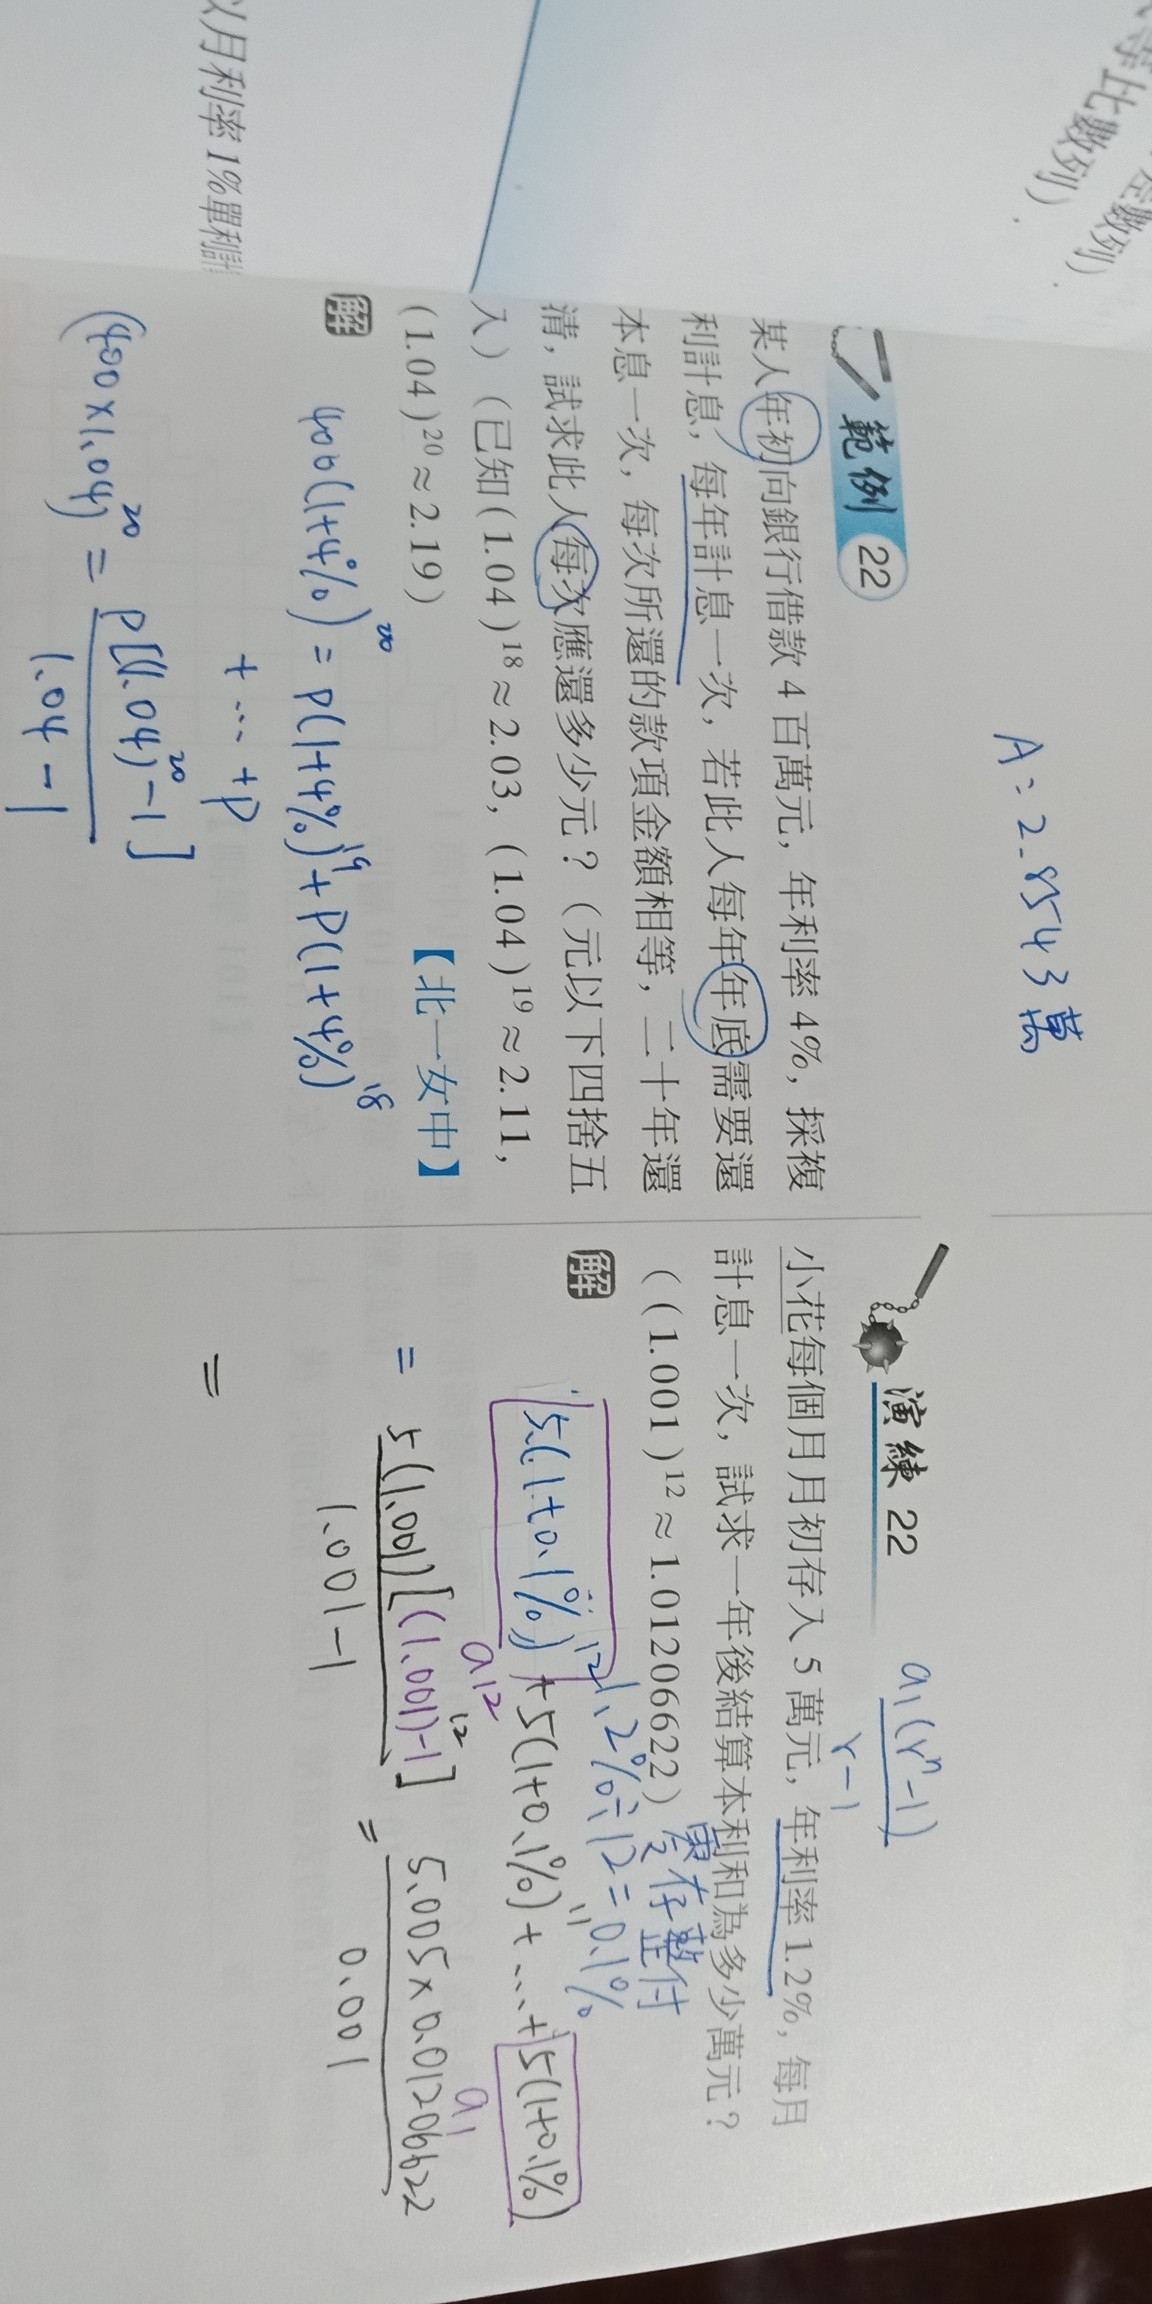 等比數列）.
差數列）.
以月利率1%單利計
A：2.8543萬
範例 22
某人年初向銀行借款4百萬元，年利率4%，採複
利計息，每年計息一次，若此人每年年底需要還
本息一次，每次所還的款項金額相等，二十年還
清，試求此人每次應還多少元？（元以下四捨五
入）（已知(1.04)¹⁸≈2.03，(1.04)¹⁹≈2.11，
(1.04)²⁰≈2.19）
【北一女中】
解
400(1+4%)²⁰=P(1+4%)¹⁹+P(1+4%)¹⁸
+…+P
(400×1.04)²⁰=P[(1.04)²⁰-1]
1.04-1
演練 22
a₁(rⁿ-1)
r-1
小花每個月月初存入5萬元，年利率1.2%，每月
計息一次，試求一年後結算本利和為多少萬元？
((1.001)¹²≈1.01206622)
零存整付
解
1.2%÷12=0.1%
5(1+0.1%)¹²+5(1+0.1%)¹¹+…+5(1+0.1%)
a12
a1
=5(1.001)[(1.001)¹²-1]
1.001-1
=5.005×0.01206622
0.001
=